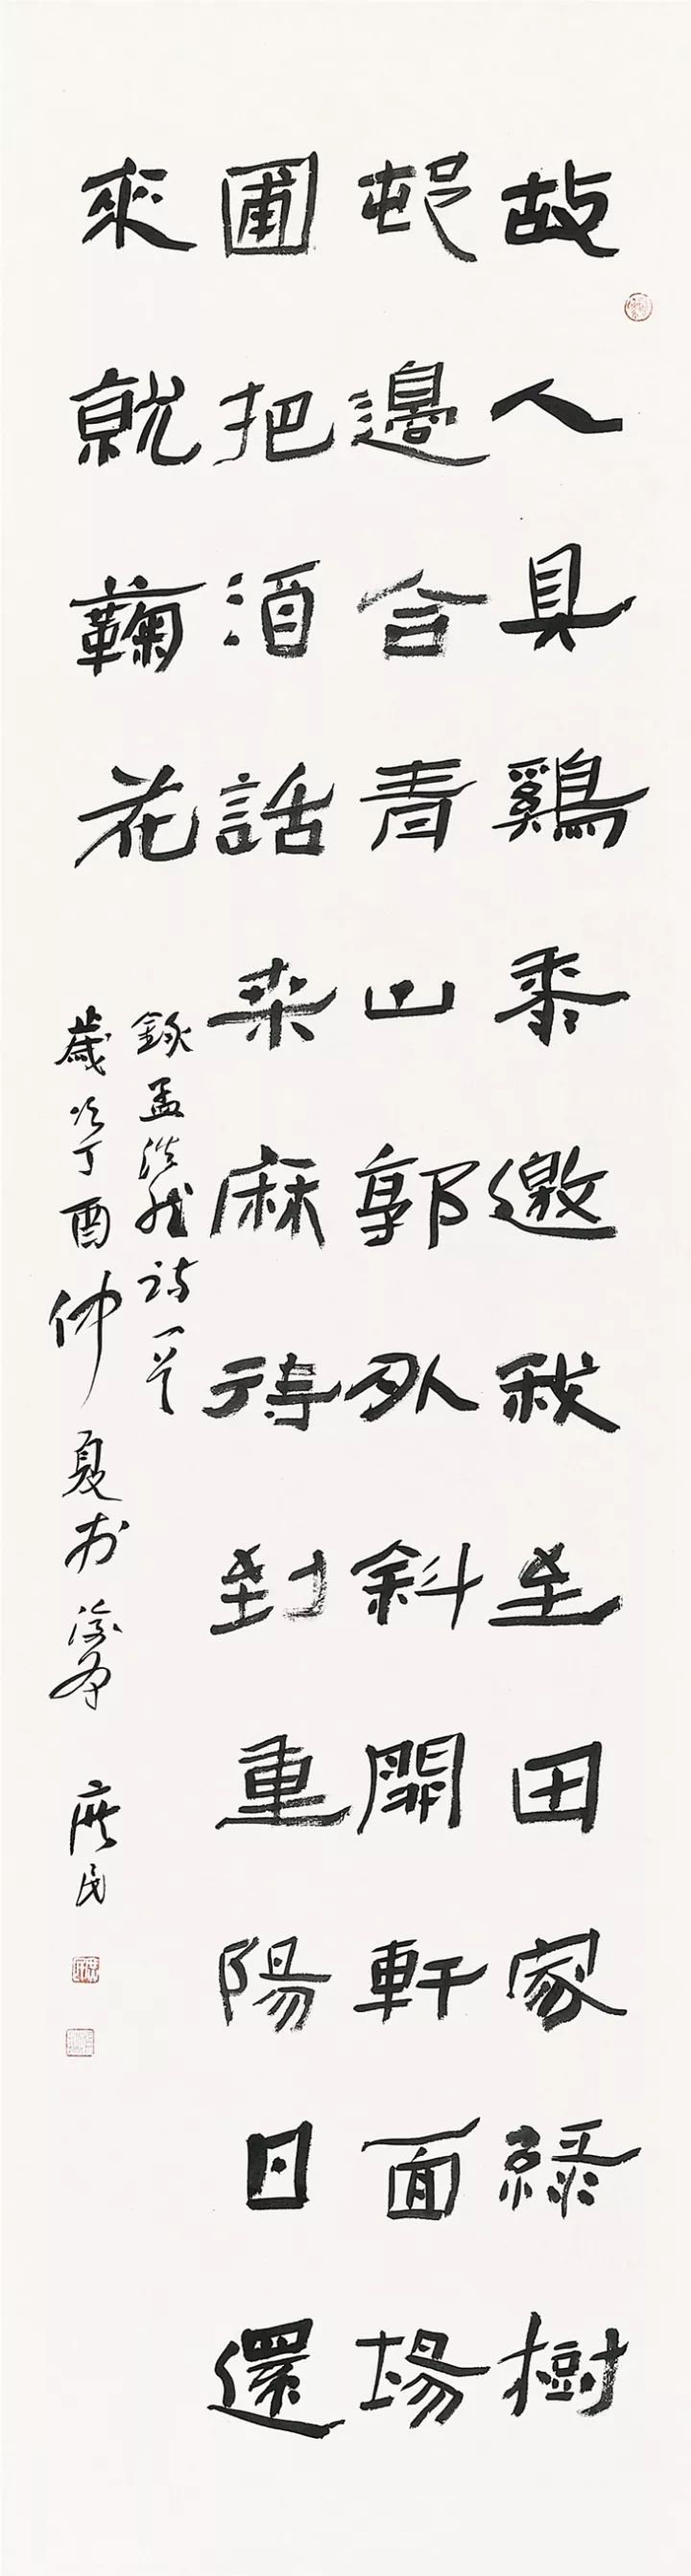 故人具鷄黍邀我至田家綠樹
邨邊合青山郭外斜開軒面場
圃把酒話桒麻待到重陽日還
來就鞠花
錄孟浩然詩一首
歲次丁酉仲夏於 庶民